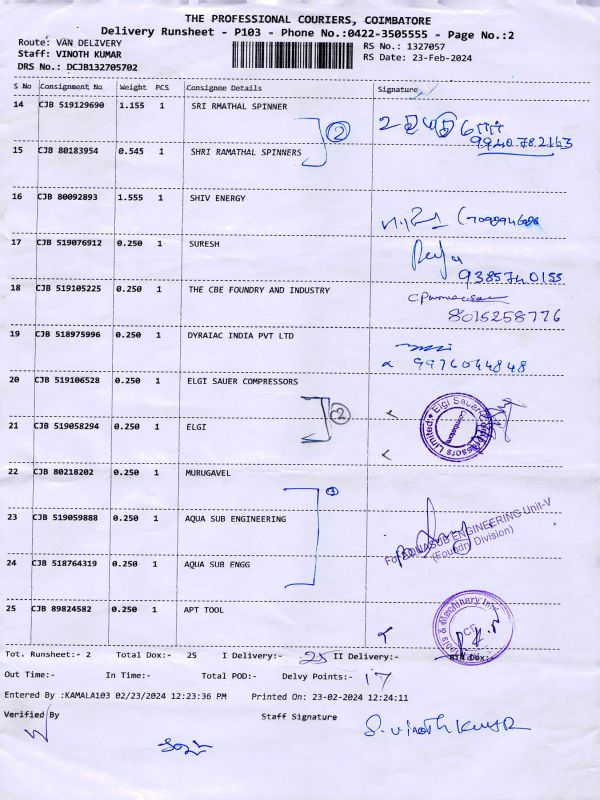 THE PROFESSIONAL COURIERS, COIMBATORE
Delivery Runsheet - P103 - Phone No.:0422-3505555 - Page No.:2
Route: VAN DELIVERY RS No.: 1327057
Staff: VINOTH KUMAR RS Date: 23-Feb-2024
DRS No.: DCJB132705702
S No Consignment No Weight PCS Consignee Details Signature
14 CJB 519129690 1.155 1 SRI RMATHAL SPINNER
2
9940782153
15 CJB 80183954 0.545 1 SHRI RAMATHAL SPINNERS
16 CJB 80092893 1.555 1 SHIV ENERGY
17 CJB 519076912 0.250 1 SURESH
9385740155
18 CJB 519105225 0.250 1 THE CBE FOUNDRY AND INDUSTRY
8015258776
19 CJB 518975996 0.250 1 DYRAIAC INDIA PVT LTD
9976044848
20 CJB 519106528 0.250 1 ELGI SAUER COMPRESSORS
2
Elgi Sauer Compressors Limited
21 CJB 519058294 0.250 1 ELGI
22 CJB 80218202 0.250 1 MURUGAVEL
3
23 CJB 519059888 0.250 1 AQUA SUB ENGINEERING
For AQUASUB ENGINEERING Unit-V
(Foundry Division)
24 CJB 518764319 0.250 1 AQUA SUB ENGG
25 CJB 89824582 0.250 1 APT TOOL
Tot. Runsheet:- 2 Total Dox:- 25 I Delivery:- 25 II Delivery:- RTN Dox:-
Out Time:- In Time:- Total POD:- Delvy Points:- 17
Entered By :KAMALA103 02/23/2024 12:23:36 PM Printed On: 23-02-2024 12:24:11
Verified By Staff Signature S. Vinoth Kumar